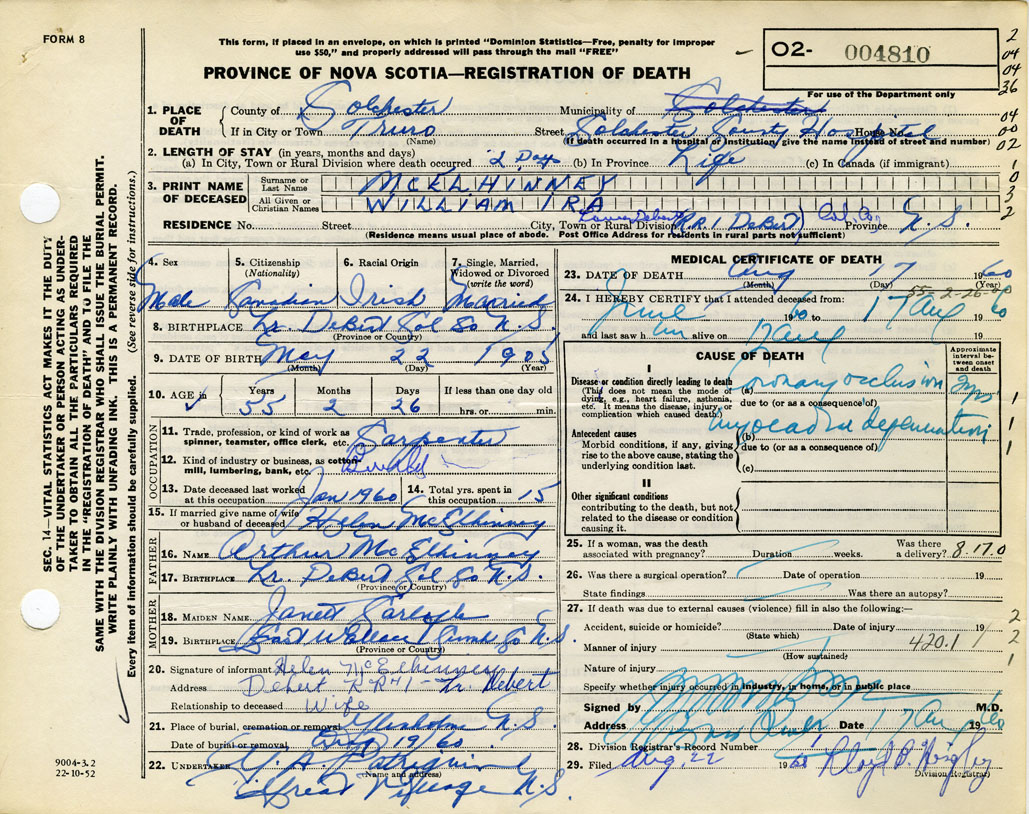 FORM 8
This form, if placed in an envelope, on which is printed "Dominion Statistics—Free, penalty for improper
use $50," and properly addressed will pass through the mail "FREE"
O2- 004810
For use of the Department only
2
04
04
36
04
00
02
1
0
3
2
PROVINCE OF NOVA SCOTIA—REGISTRATION OF DEATH
1. PLACE OF DEATH
County of Colchester Municipality of Colchester
If in City or Town Truro Street Colchester County Hospital House No.
(Name) (If death occurred in a hospital or institution, give the name instead of street and number)
2. LENGTH OF STAY (in years, months and days)
(a) In City, Town or Rural Division where death occurred 2 Days (b) In Province Life (c) In Canada (if immigrant)
3. PRINT NAME OF DECEASED
Surname or Last Name MCELHINNEY
All Given or Christian Names WILLIAM IRA
RESIDENCE No. Street City, Town or Rural Division Lower Debert (R.R.1 DEBERT) Col. Co. Province N.S.
(Residence means usual place of abode. Post Office Address for residents in rural parts not sufficient)
4. Sex Male
5. Citizenship (Nationality) Canadian
6. Racial Origin Irish
7. Single, Married, Widowed or Divorced (write the word) Married
8. BIRTHPLACE Lr. Debert Col Co N.S.
(Province or Country)
9. DATE OF BIRTH May 22 1905
(Month) (Day) (Year)
10. AGE in Years 55 Months 2 Days 26 If less than one day old hrs. or min.
OCCUPATION
11. Trade, profession, or kind of work as spinner, teamster, office clerk, etc. Carpenter
12. Kind of industry or business, as cotton-mill, lumbering, bank, etc.
13. Date deceased last worked at this occupation Jan 1960
14. Total yrs. spent in this occupation 15
15. If married give name of wife or husband of deceased Helen McElhinney
FATHER
16. NAME Arthur McElhinney
17. BIRTHPLACE Lr. Debert Col Co N.S.
(Province or Country)
MOTHER
18. MAIDEN NAME Janett
19. BIRTHPLACE East Wallace Cumb Co N.S.
(Province or Country)
20. Signature of informant Helen McElhinney
Address Debert R.R#1 - Lr. Debert
Relationship to deceased Wife
21. Place of burial, cremation or removal Glenholme N.S.
Date of burial or removal Aug 19/60
22. UNDERTAKER G. A. Patriquin
(Name and address)
Great Village N.S.
MEDICAL CERTIFICATE OF DEATH
23. DATE OF DEATH Aug 17 1960
(Month) (Day) (Year)
55-2-26
24. I HEREBY CERTIFY that I attended deceased from:
June 1960 to 17 Aug 1960
and last saw him alive on 17 Aug 19
CAUSE OF DEATH
Approximate interval between onset and death
I
Disease or condition directly leading to death
(This does not mean the mode of dying, e.g., heart failure, asthenia, etc. It means the disease, injury, or complication which caused death.)
(a) Coronary occlusion
due to (or as a consequence of)
myocardial degeneration
Antecedent causes
Morbid conditions, if any, giving rise to the above cause, stating the underlying condition last.
(b)
due to (or as a consequence of)
(c)
II
Other significant conditions
contributing to the death, but not related to the disease or condition causing it.
1
1
1
1
25. If a woman, was the death associated with pregnancy? Duration weeks. Was there a delivery?
8.17.0
26. Was there a surgical operation? Date of operation 19
State findings Was there an autopsy?
27. If death was due to external causes (violence) fill in also the following:—
Accident, suicide or homicide? Date of injury 19
(State which)
Manner of injury 420.1
(How sustained)
Nature of injury
Specify whether injury occurred in industry, in home, or in public place
2
2
1
Signed by M.D.
Address Date 17 Aug 1960
28. Division Registrar's Record Number
29. Filed Aug. 22 19
Division Registrar
9004-3.2
22-10-52
SEC. 14—VITAL STATISTICS ACT MAKES IT THE DUTY
OF THE UNDERTAKER OR PERSON ACTING AS UNDER-
TAKER TO OBTAIN ALL THE PARTICULARS REQUIRED
IN THE "REGISTRATION OF DEATH" AND TO FILE THE
SAME WITH THE DIVISION REGISTRAR WHO SHALL ISSUE THE BURIAL PERMIT.
WRITE PLAINLY WITH UNFADING INK. THIS IS A PERMANENT RECORD.
Every item of information should be carefully supplied. (See reverse side for instructions.)